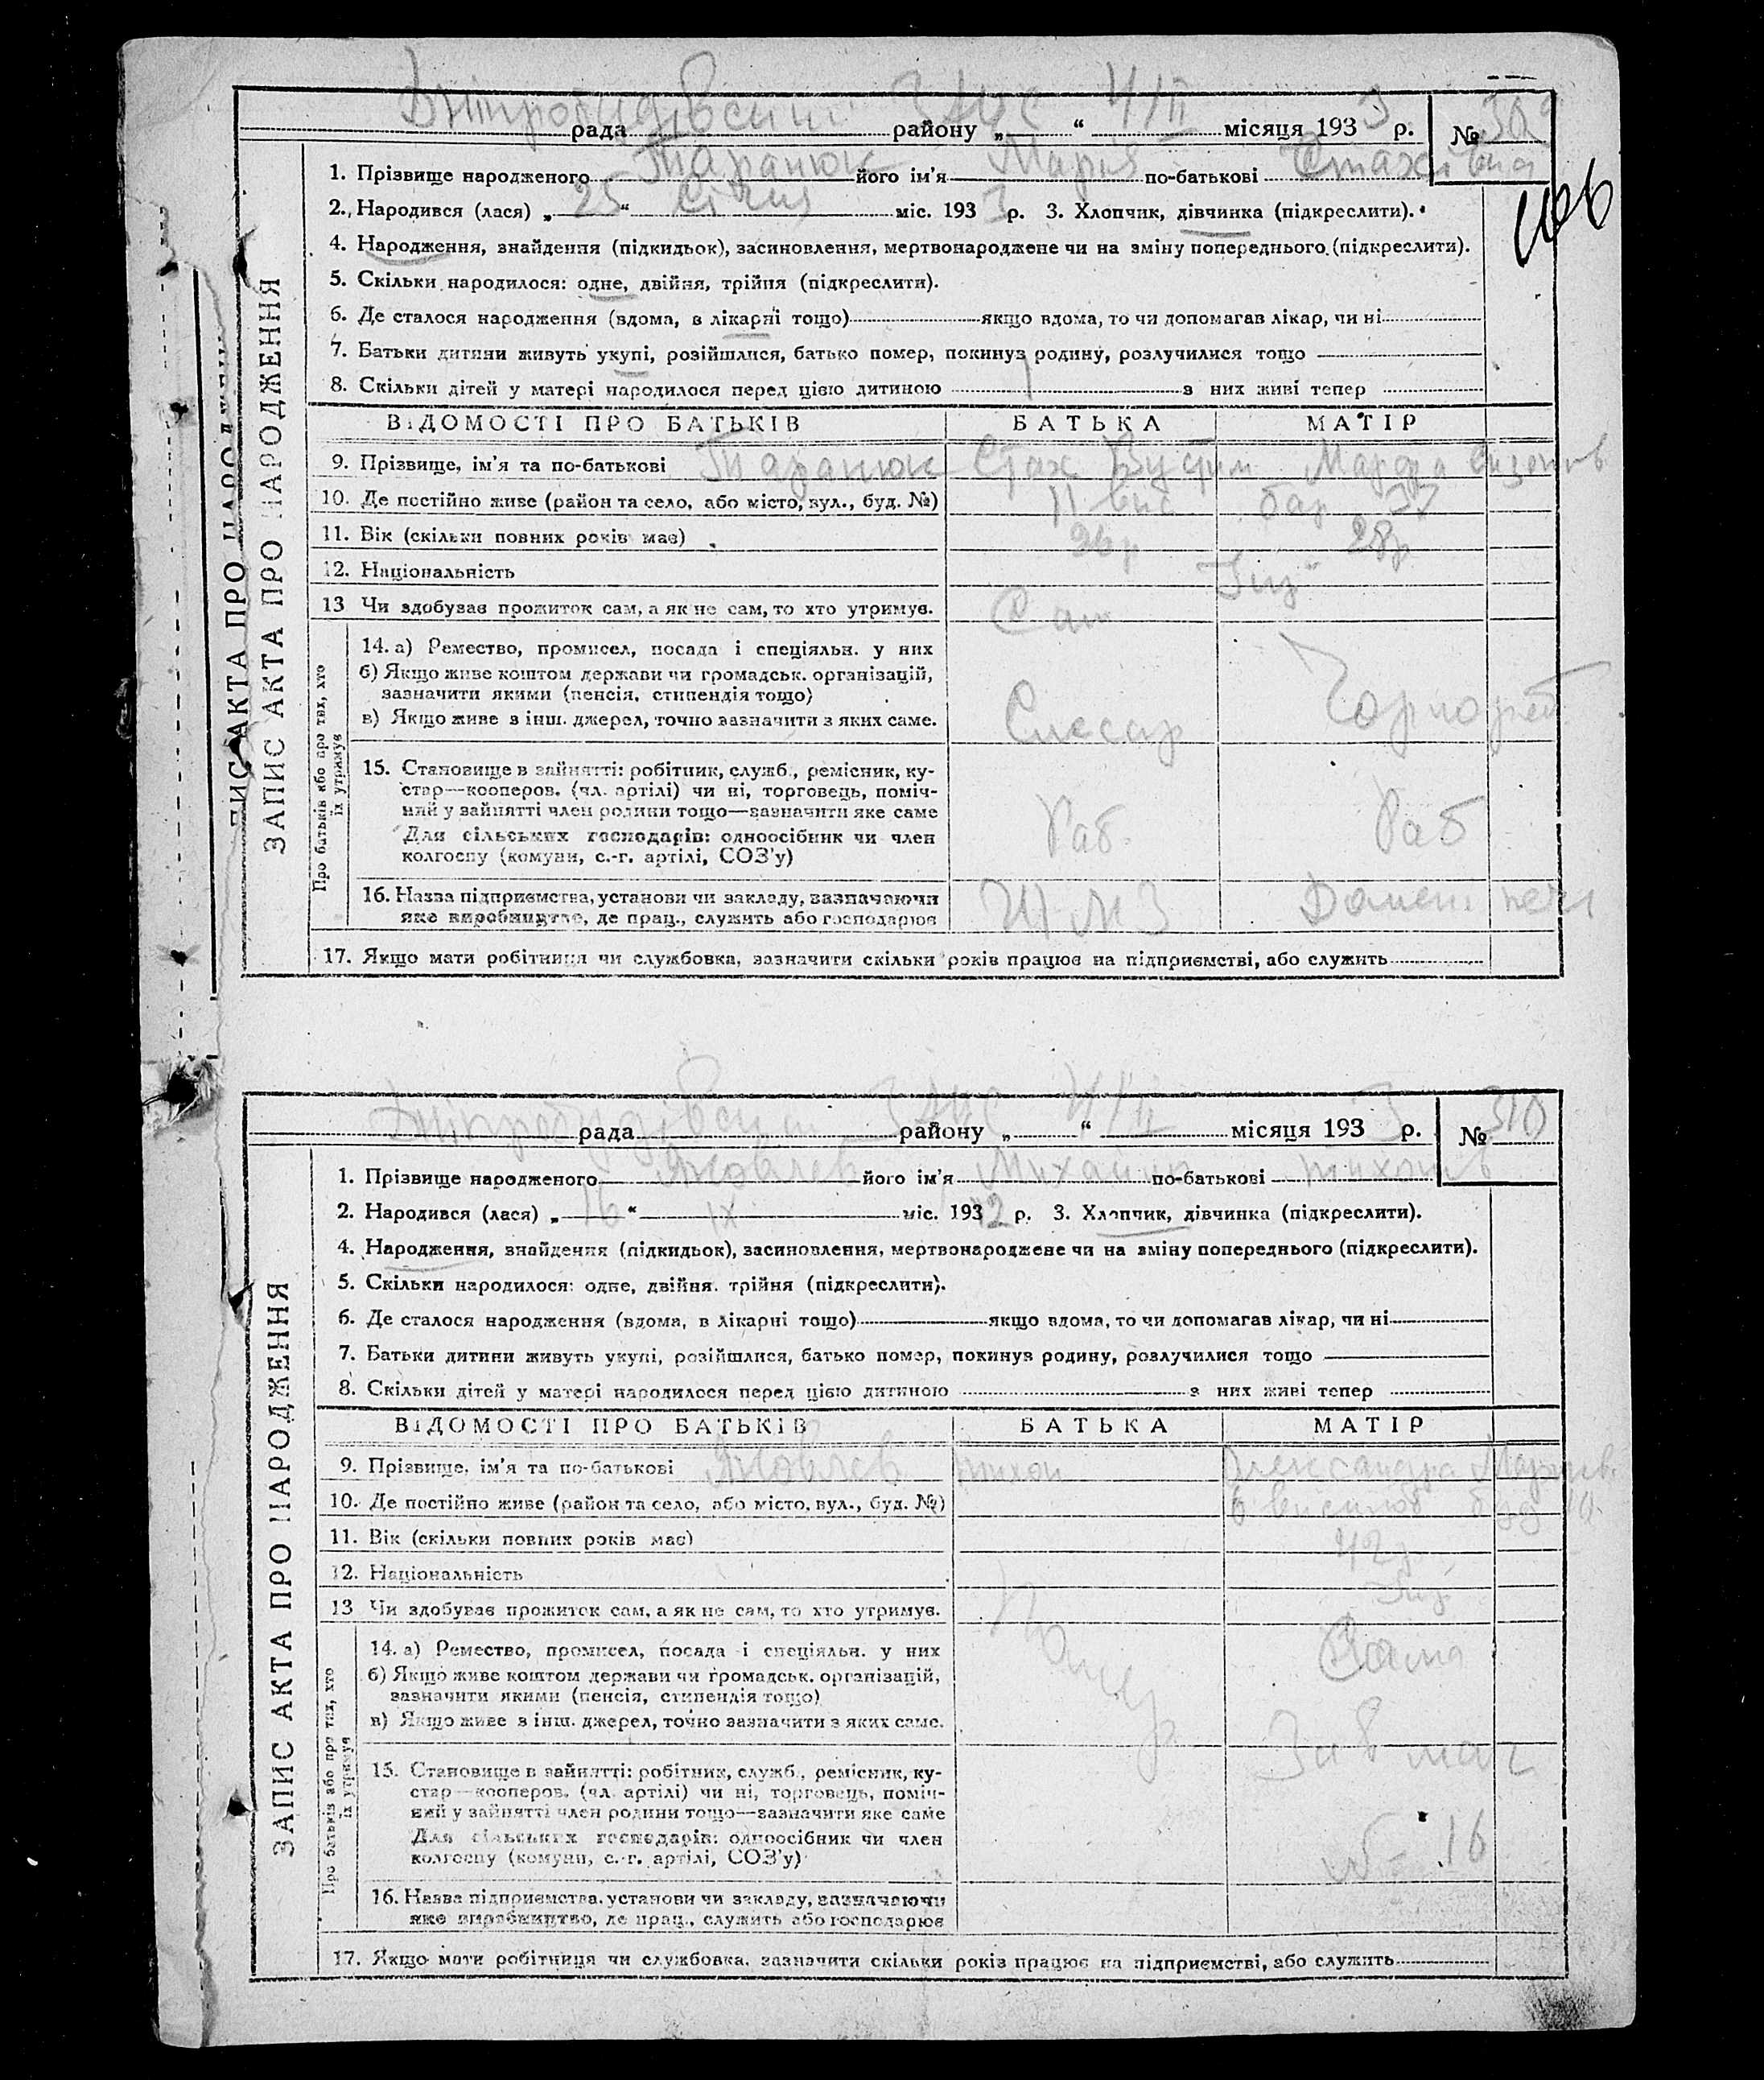 Дніпробудівський ЗАГС 4/II 3
рада районy „ “ місяця 193 р. № 309
1. Прізвище народженого Таранюк його ім'я Марія по-батькові Стахівна
166
2. Народився (лася) „25“ січня міс. 193 3 р. 3. Хлопчик, дівчинка (підкреслити).
4. Народження, знайдення (підкидьок), засиновлення, мертвонароджене чи на зміну попереднього (підкреслити).
5. Скільки народилося: одне, двійня, трійня (підкреслити).
6. Де сталося народження (вдома, в лікарні тощо) якщо вдома, то чи допомагав лікар, чи ні
7. Батьки дитини живуть укупі, розійшлися, батько помер, покинув родину, розлучилися тощо
8. Скільки дітей у матері народилося перед цією дитиною 1 з них живі тепер
ВІДОМОСТІ ПРО БАТЬКІВ БАТЬКА МАТІР
9. Прізвище, ім'я та по-батькові Таранюк Стах Марфа
10. Де постійно живе (район та село, або місто, вул., буд. №) 11 вис бар 37
11. Вік (скільки повних років має) 26р 28р
12. Національність
13 Чи здобуває прожиток сам, а як не сам, то хто утримує. Сам
14. а) Ремество, промисел, посада і спеціяльн. у них
б) Якщо живе коштом держави чи громадськ. організацій,
зазначити якими (пенсія, стипендія тощо)
в) Якщо живе з інш. джерел, точно зазначити з яких саме. Слєсар Чорнороб
15. Становище в зайнятті: робітник, служб., ремісник, ку-
стар—кооперов. (чл. артілі) чи ні, торговець, поміч-
ний у зайнятті член родини тощо—зазначити яке саме
Для сільських господарів: одноосібник чи член
колгоспу (комуни, с.-г. артілі, СОЗ'у) Раб. Раб
16. Назва підприємства, установи чи закладу, зазначаючи
яке виробництво, де прац., служить або господарює
17. Якщо мати робітниця чи службовка, зазначити скільки років працює на підприємстві, або служить
Про батьків або про тих, хто
їх утримує
ЗАПИС АКТА ПРО НАРОДЖЕННЯ
Дніпробудівськ ЗАГС 4/II 3
рада районy „ “ місяця 193 р. № 310
1. Прізвище народженого Яковлєв його ім'я Михайло по-батькові Тихонів
2. Народився (лася) „16“ IX міс. 193 2 р. 3. Хлопчик, дівчинка (підкреслити).
4. Народження, знайдення (підкидьок), засиновлення, мертвонароджене чи на зміну попереднього (підкреслити).
5. Скільки народилося: одне, двійня, трійня (підкреслити).
6. Де сталося народження (вдома, в лікарні тощо) якщо вдома, то чи допомагав лікар, чи ні
7. Батьки дитини живуть укупі, розійшлися, батько помер, покинув родину, розлучилися тощо
8. Скільки дітей у матері народилося перед цією дитиною з них живі тепер
ВІДОМОСТІ ПРО БАТЬКІВ БАТЬКА МАТІР
9. Прізвище, ім'я та по-батькові Яковлєв Тихон Александра
10. Де постійно живе (район та село, або місто, вул., буд. №) 6
11. Вік (скільки повних років має) 42р
12. Національність
13 Чи здобуває прожиток сам, а як не сам, то хто утримує.
14. а) Ремество, промисел, посада і спеціяльн. у них Сама
б) Якщо живе коштом держави чи громадськ. організацій,
зазначити якими (пенсія, стипендія тощо) Помер
в) Якщо живе з інш. джерел, точно зазначити з яких саме.
15. Становище в зайнятті: робітник, служб., ремісник, ку- Зав маг
стар—кооперов. (чл. артілі) чи ні, торговець, поміч-
ний у зайнятті член родини тощо—зазначити яке саме
Для сільських господарів: одноосібник чи член
колгоспу (комуни, с.-г. артілі, СОЗ'у) № 16
16. Назва підприємства, установи чи закладу, зазначаючи
яке виробництво, де прац., служить або господарює
17. Якщо мати робітниця чи службовка, зазначити скільки років працює на підприємстві, або служить
Про батьків або про тих, хто
їх утримує
ЗАПИС АКТА ПРО НАРОДЖЕННЯ